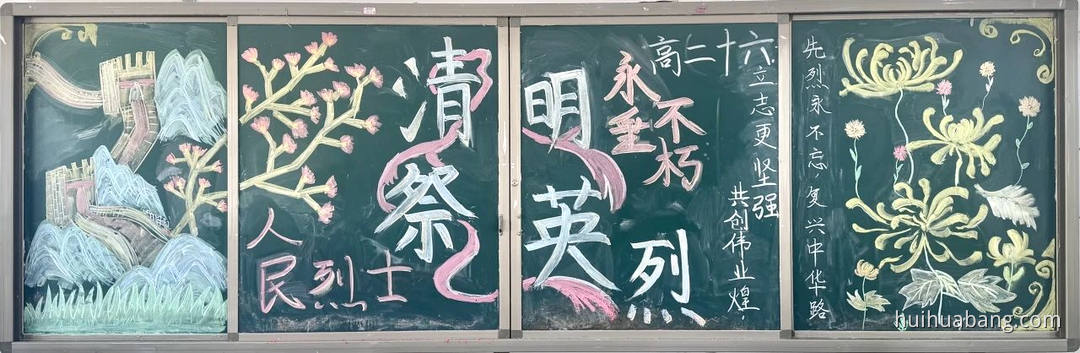 清明
祭英烈
人民烈士
永垂不朽
高二十六
立志更坚强
共创伟业煌.
先烈永不忘,复兴中华路
huihuabang.com